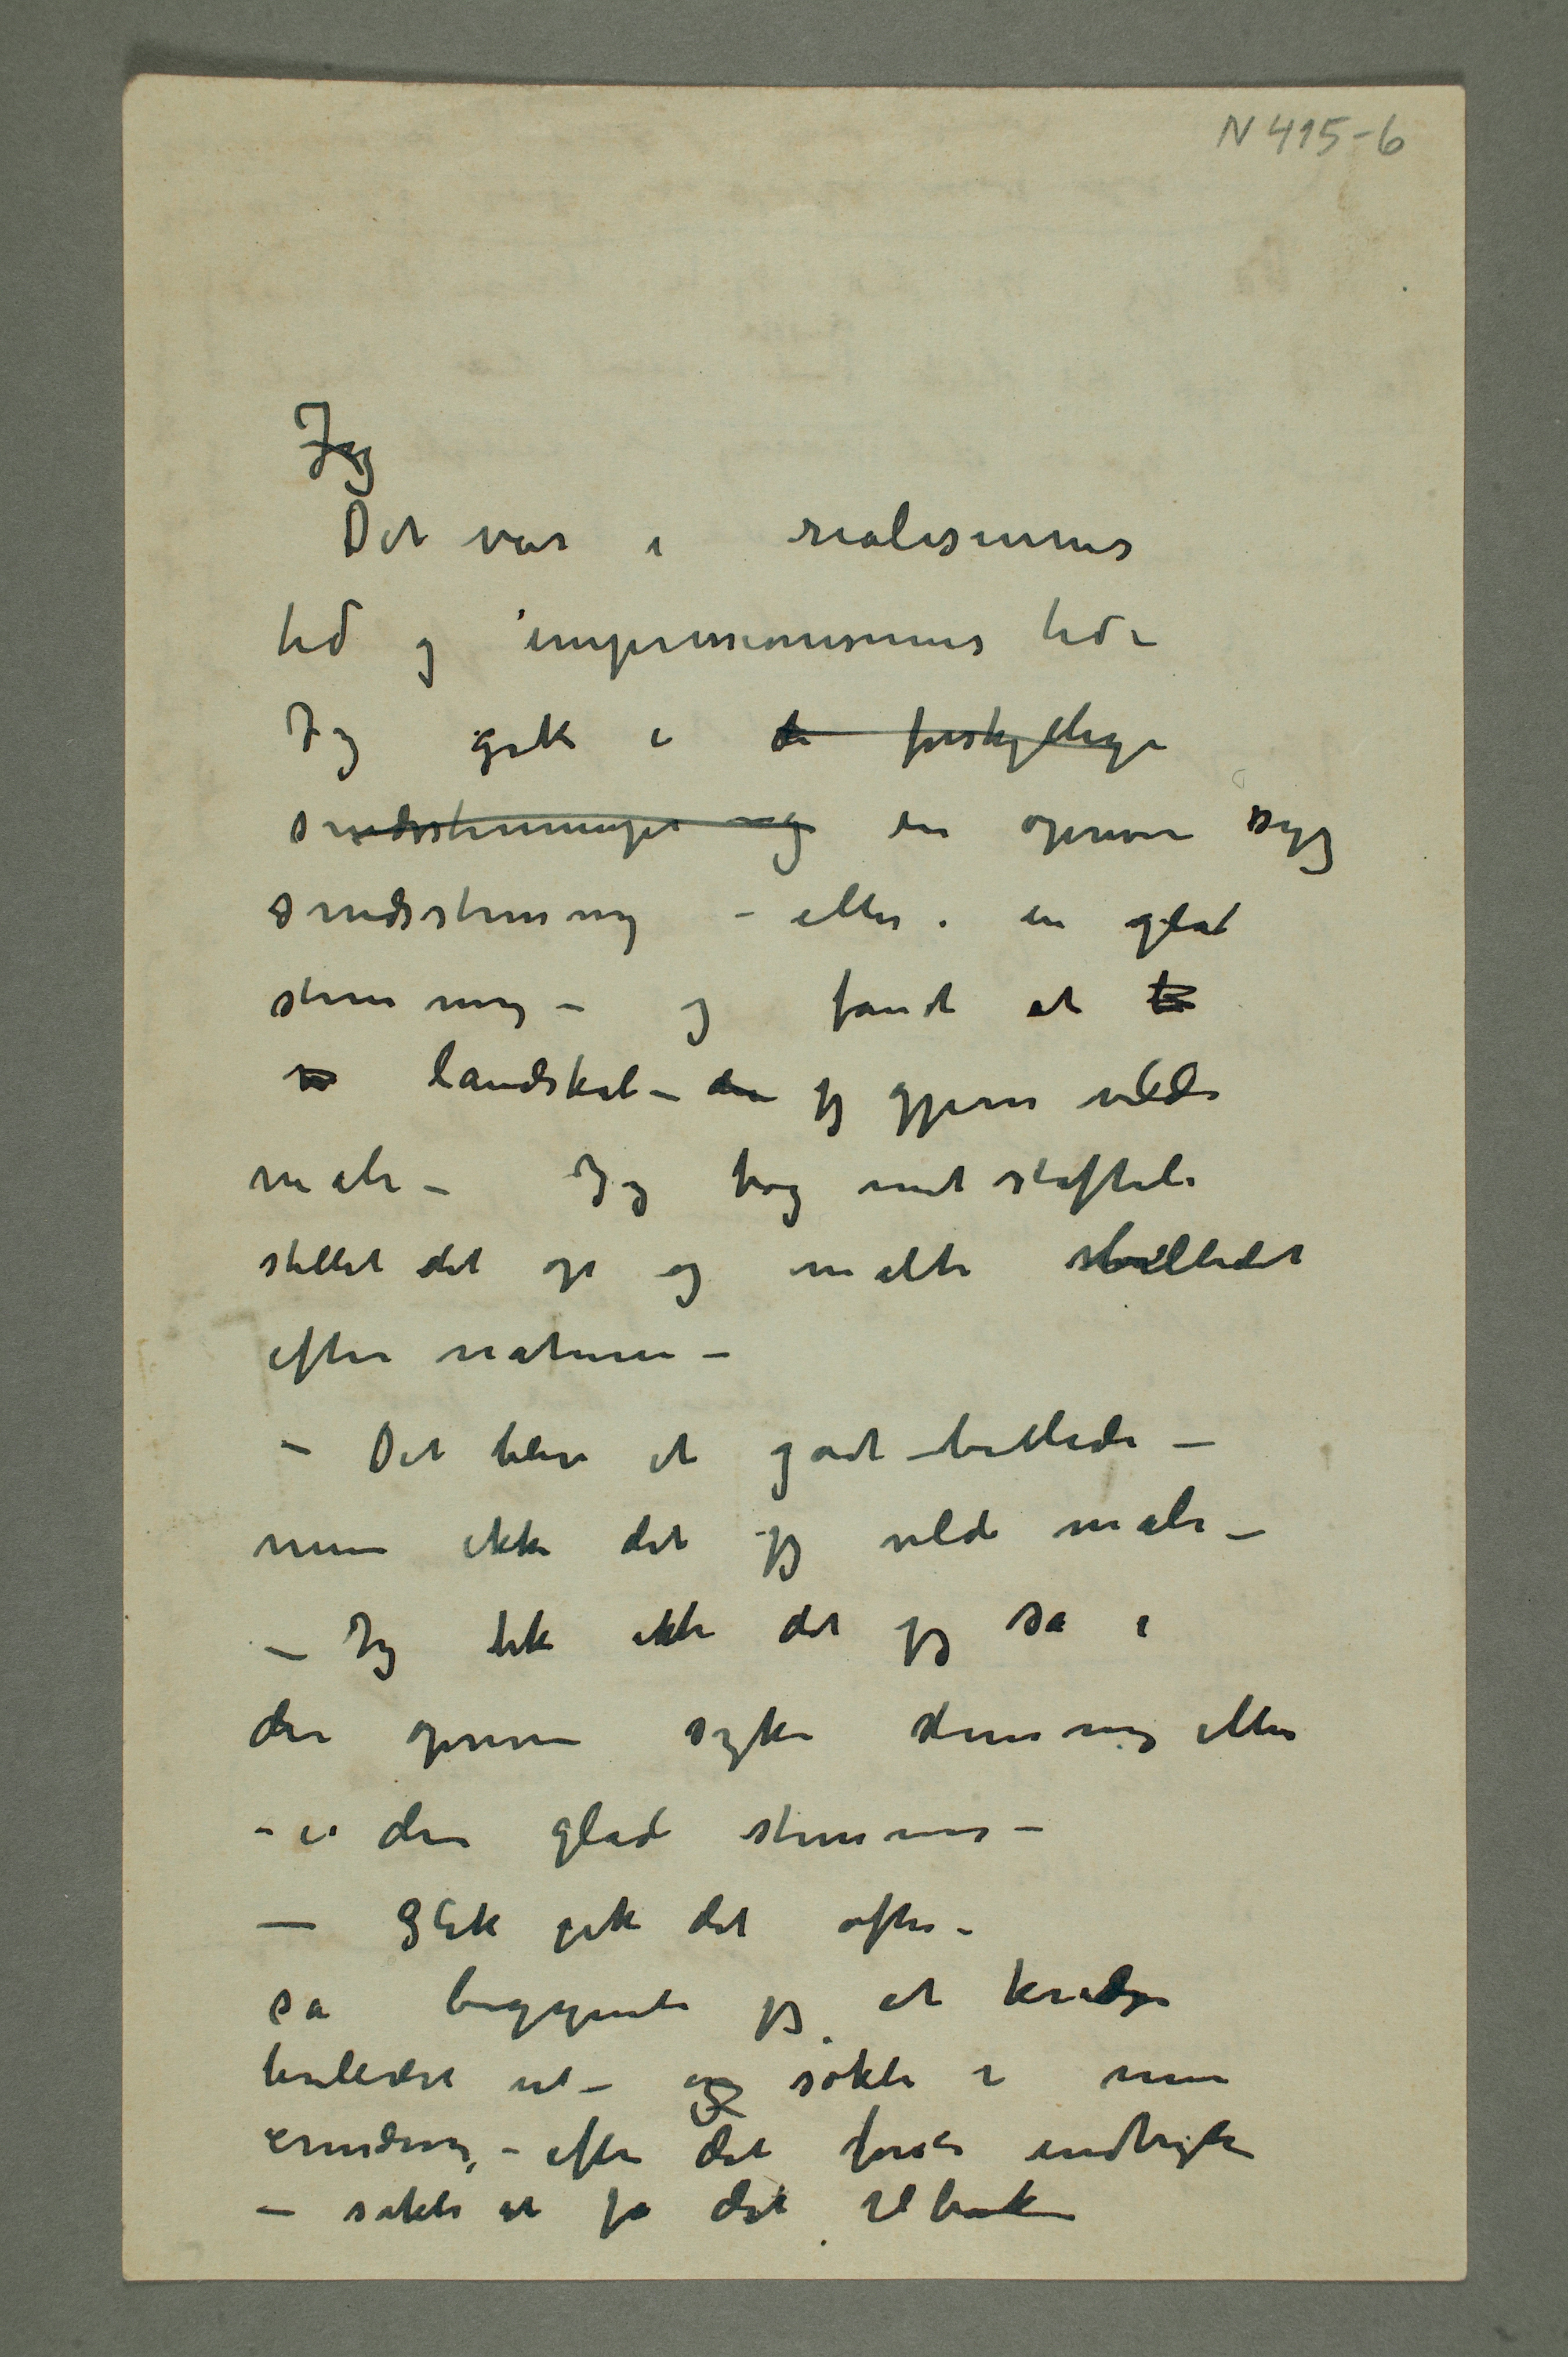 N 415-6
Jeg
Det var i realismens
tid og impressionismens tid –
Jeg gik i de forskjellige
sindsstemninger og en oprevn syg
sindsstemning – eller i en glad
stemning – og fandt et
landskab – jeg gjerne vilde
male – Jeg tog mit staffeli
stillet det op og malte billedet
efter naturen –
– Det blev et godt billede –
men ikke det jeg vilde male –
– Jeg fik ikke det jeg så i
den oprevne syke stemning eller
– i den glade stemning –
– Slik gik det ofte –
så begyndte jeg at kradse
billedet ut – og søkte i min
erindring – efter det første indtryk
– søkte at få det tilbake